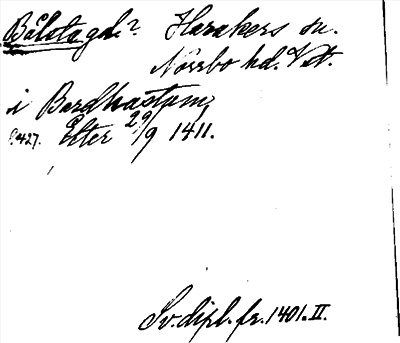 Bålstagh? Harakers sn.
Norrbo hd. Vstm.
i Bardhastum,
s. 427. Efter 29/9 1411.
Sv. dipl. fr. 1401. II.